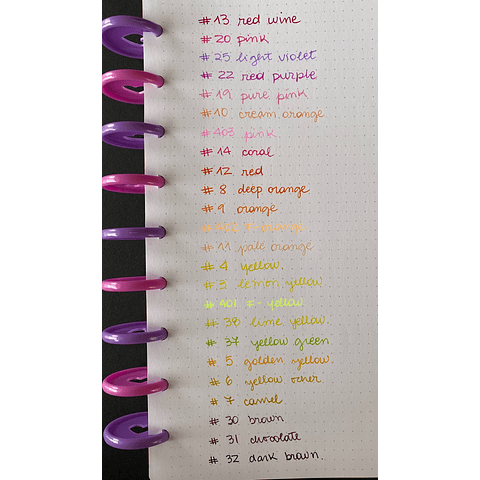 #13 red wine
#20 pink
#25 light violet
#22 red purple
#19 pure pink
#10 cream orange
#403 pink
#14 coral
#12 red
#8 deep orange
#9 orange
#402 F-orange
#11 pale orange
#4 yellow.
#3 lemon yellow
#401 F-yellow
#38 lime yellow
#37 yellow green
#5 golden yellow.
#6 yellow ocher.
#7 camel
#30 brown
#31 chocolate
#32 dark brown.